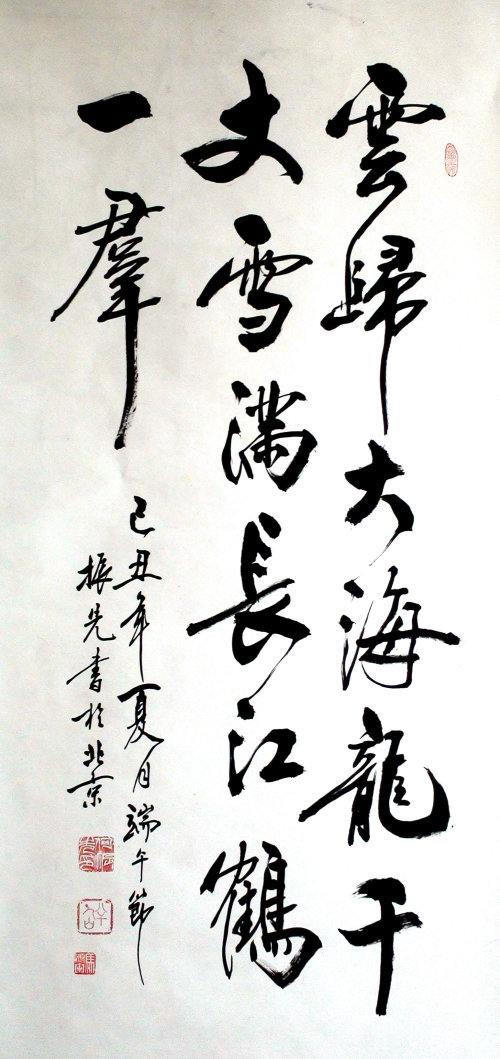 雲歸大海龍千
丈雪滿長江鶴
一羣
己丑年夏月端午節
振先書於北京